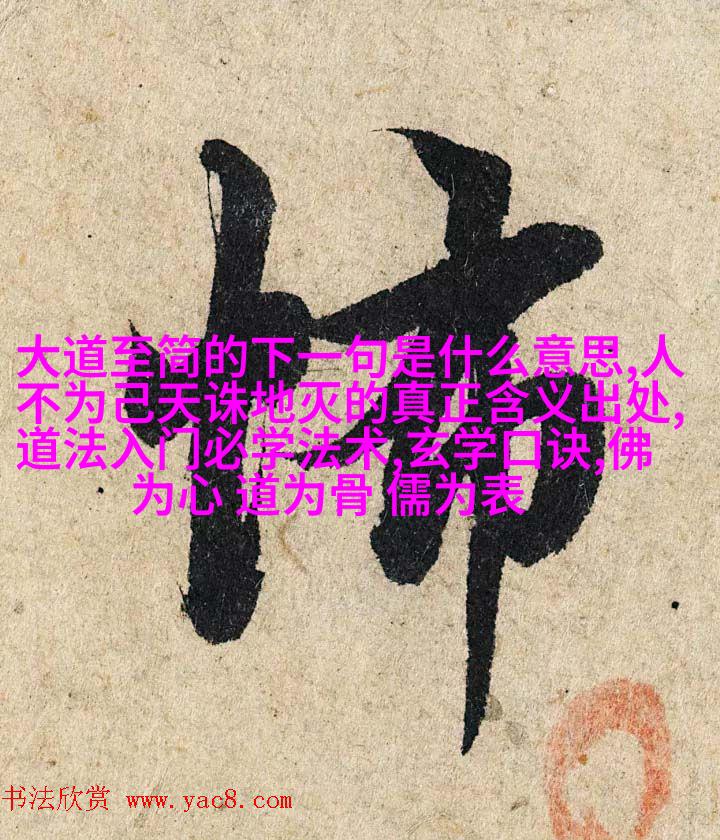 怖
大道至简的下一句是什么意思,人
不为己天诛地灭的真正含义出处,
道法入门必学法术,玄学口诀,佛
为心 道为骨 儒为表
书法欣赏 www.yac8.com